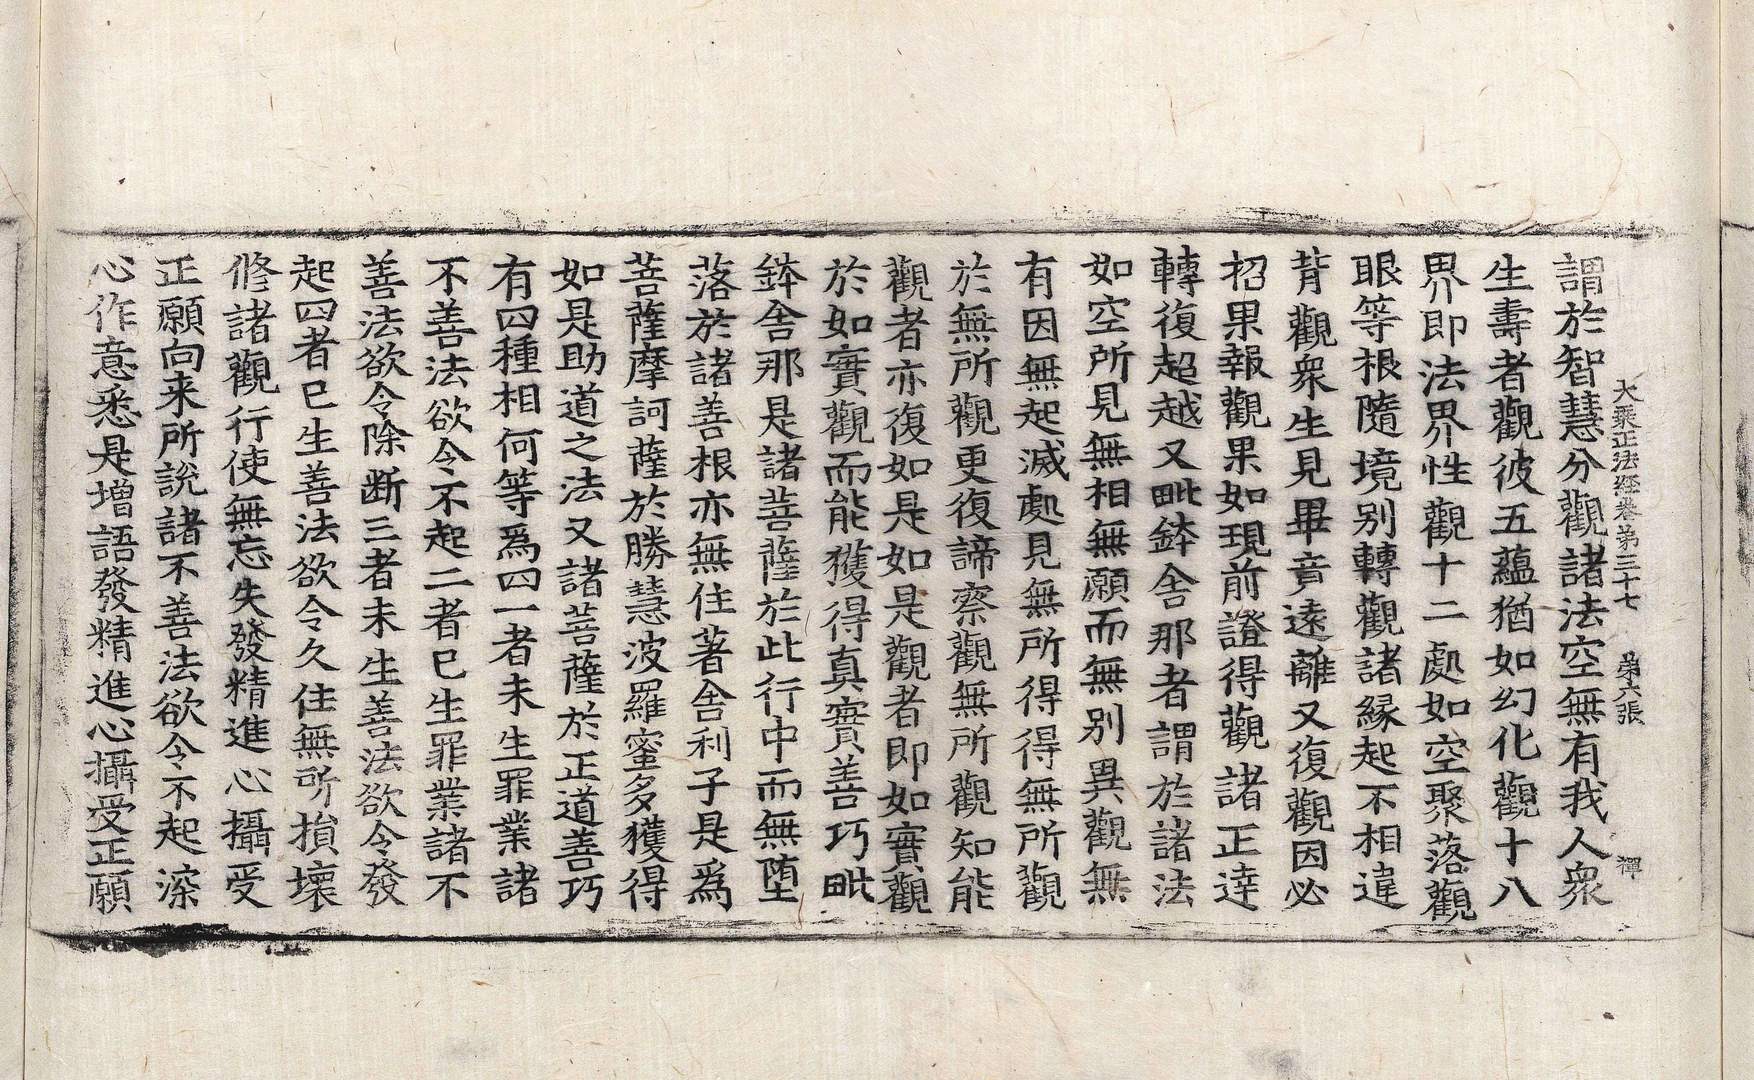 大乘正法經卷第三十七 第六張 禪
謂於智慧分觀諸法空無有我人衆
生壽者觀彼五蘊猶如幻化觀十八
界即法界性觀十二處如空聚落觀
眼等根隨境別轉觀諸緣起不相違
背觀衆生見畢竟遠離又復觀因必
招果報觀果如現前證得觀諸正達
轉復超越又毗鉢舍那者謂於諸法
如空所見無相無願而無別異觀無
有因無起滅處見無所得得無所觀
於無所觀更復諦察觀無所觀知能
觀者亦復如是如是觀者即如實觀
於如實觀而能獲得真實善巧毗
鉢舍那是諸菩薩於此行中而無墮
落於諸善根亦無住著舍利子是為
菩薩摩訶薩於勝慧波羅蜜多獲得
如是助道之法又諸菩薩於正道善巧
有四種相何等爲四一者未生罪業諸
不善法欲令不起二者已生罪業諸不
善法欲令除断三者未生善法欲令發
起四者已生善法欲令久住無所損壞
修諸觀行使無忘失發精進心攝受
正願向来所說諸不善法欲令不起深
心作意悉是增語發精進心攝受正願